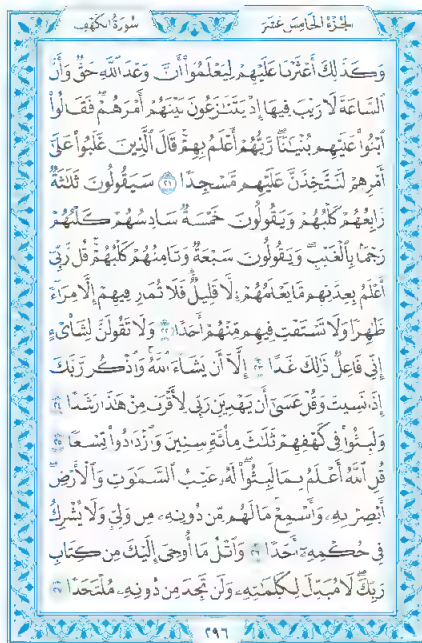 الجزء الخامس عشر
سورة الكهف
وَكَذَٰلِكَ أَعْثَرْنَا عَلَيْهِمْ لِيَعْلَمُوٓا۟ أَنَّ وَعْدَ ٱللَّهِ حَقٌّ وَأَنَّ
ٱلسَّاعَةَ لَا رَيْبَ فِيهَآ إِذْ يَتَنَٰزَعُونَ بَيْنَهُمْ أَمْرَهُمْ ۖ فَقَالُوا۟
ٱبْنُوا۟ عَلَيْهِم بُنْيَٰنًا ۖ رَّبُّهُمْ أَعْلَمُ بِهِمْ ۚ قَالَ ٱلَّذِينَ غَلَبُوا۟ عَلَىٰٓ
أَمْرِهِمْ لَنَتَّخِذَنَّ عَلَيْهِم مَّسْجِدًا ٢١ سَيَقُولُونَ ثَلَٰثَةٌ
رَّابِعُهُمْ كَلْبُهُمْ وَيَقُولُونَ خَمْسَةٌ سَادِسُهُمْ كَلْبُهُمْ
رَجْمًۢا بِٱلْغَيْبِ ۖ وَيَقُولُونَ سَبْعَةٌ وَثَامِنُهُمْ كَلْبُهُمْ ۚ قُل رَّبِّىٓ
أَعْلَمُ بِعِدَّتِهِم مَّا يَعْلَمُهُمْ إِلَّا قَلِيلٌ ۗ فَلَا تُمَارِ فِيهِمْ إِلَّا مِرَآءً
ظَٰهِرًا وَلَا تَسْتَفْتِ فِيهِم مِّنْهُمْ أَحَدًا ٢٢ وَلَا تَقُولَنَّ لِشَا۟ىْءٍ
إِنِّى فَاعِلٌ ذَٰلِكَ غَدًا ٢٣ إِلَّآ أَن يَشَآءَ ٱللَّهُ ۚ وَٱذْكُر رَّبَّكَ
إِذَا نَسِيتَ وَقُلْ عَسَىٰٓ أَن يَهْدِيَنِ رَبِّى لِأَقْرَبَ مِنْ هَٰذَا رَشَدًا ٢٤
وَلَبِثُوا۟ فِى كَهْفِهِمْ ثَلَٰثَ مِا۟ئَةٍ سِنِينَ وَٱزْدَادُوا۟ تِسْعًا ٢٥
قُلِ ٱللَّهُ أَعْلَمُ بِمَا لَبِثُوا۟ ۖ لَهُۥ غَيْبُ ٱلسَّمَٰوَٰتِ وَٱلْأَرْضِ ۖ
أَبْصِرْ بِهِۦ وَأَسْمِعْ ۚ مَا لَهُم مِّن دُونِهِۦ مِن وَلِىٍّ وَلَا يُشْرِكُ
فِى حُكْمِهِۦٓ أَحَدًا ٢٦ وَٱتْلُ مَآ أُوحِىَ إِلَيْكَ مِن كِتَابِ
رَبِّكَ ۖ لَا مُبَدِّلَ لِكَلِمَٰتِهِۦ وَلَن تَجِدَ مِن دُونِهِۦ مُلْتَحَدًا ٢٧
٢٩٦